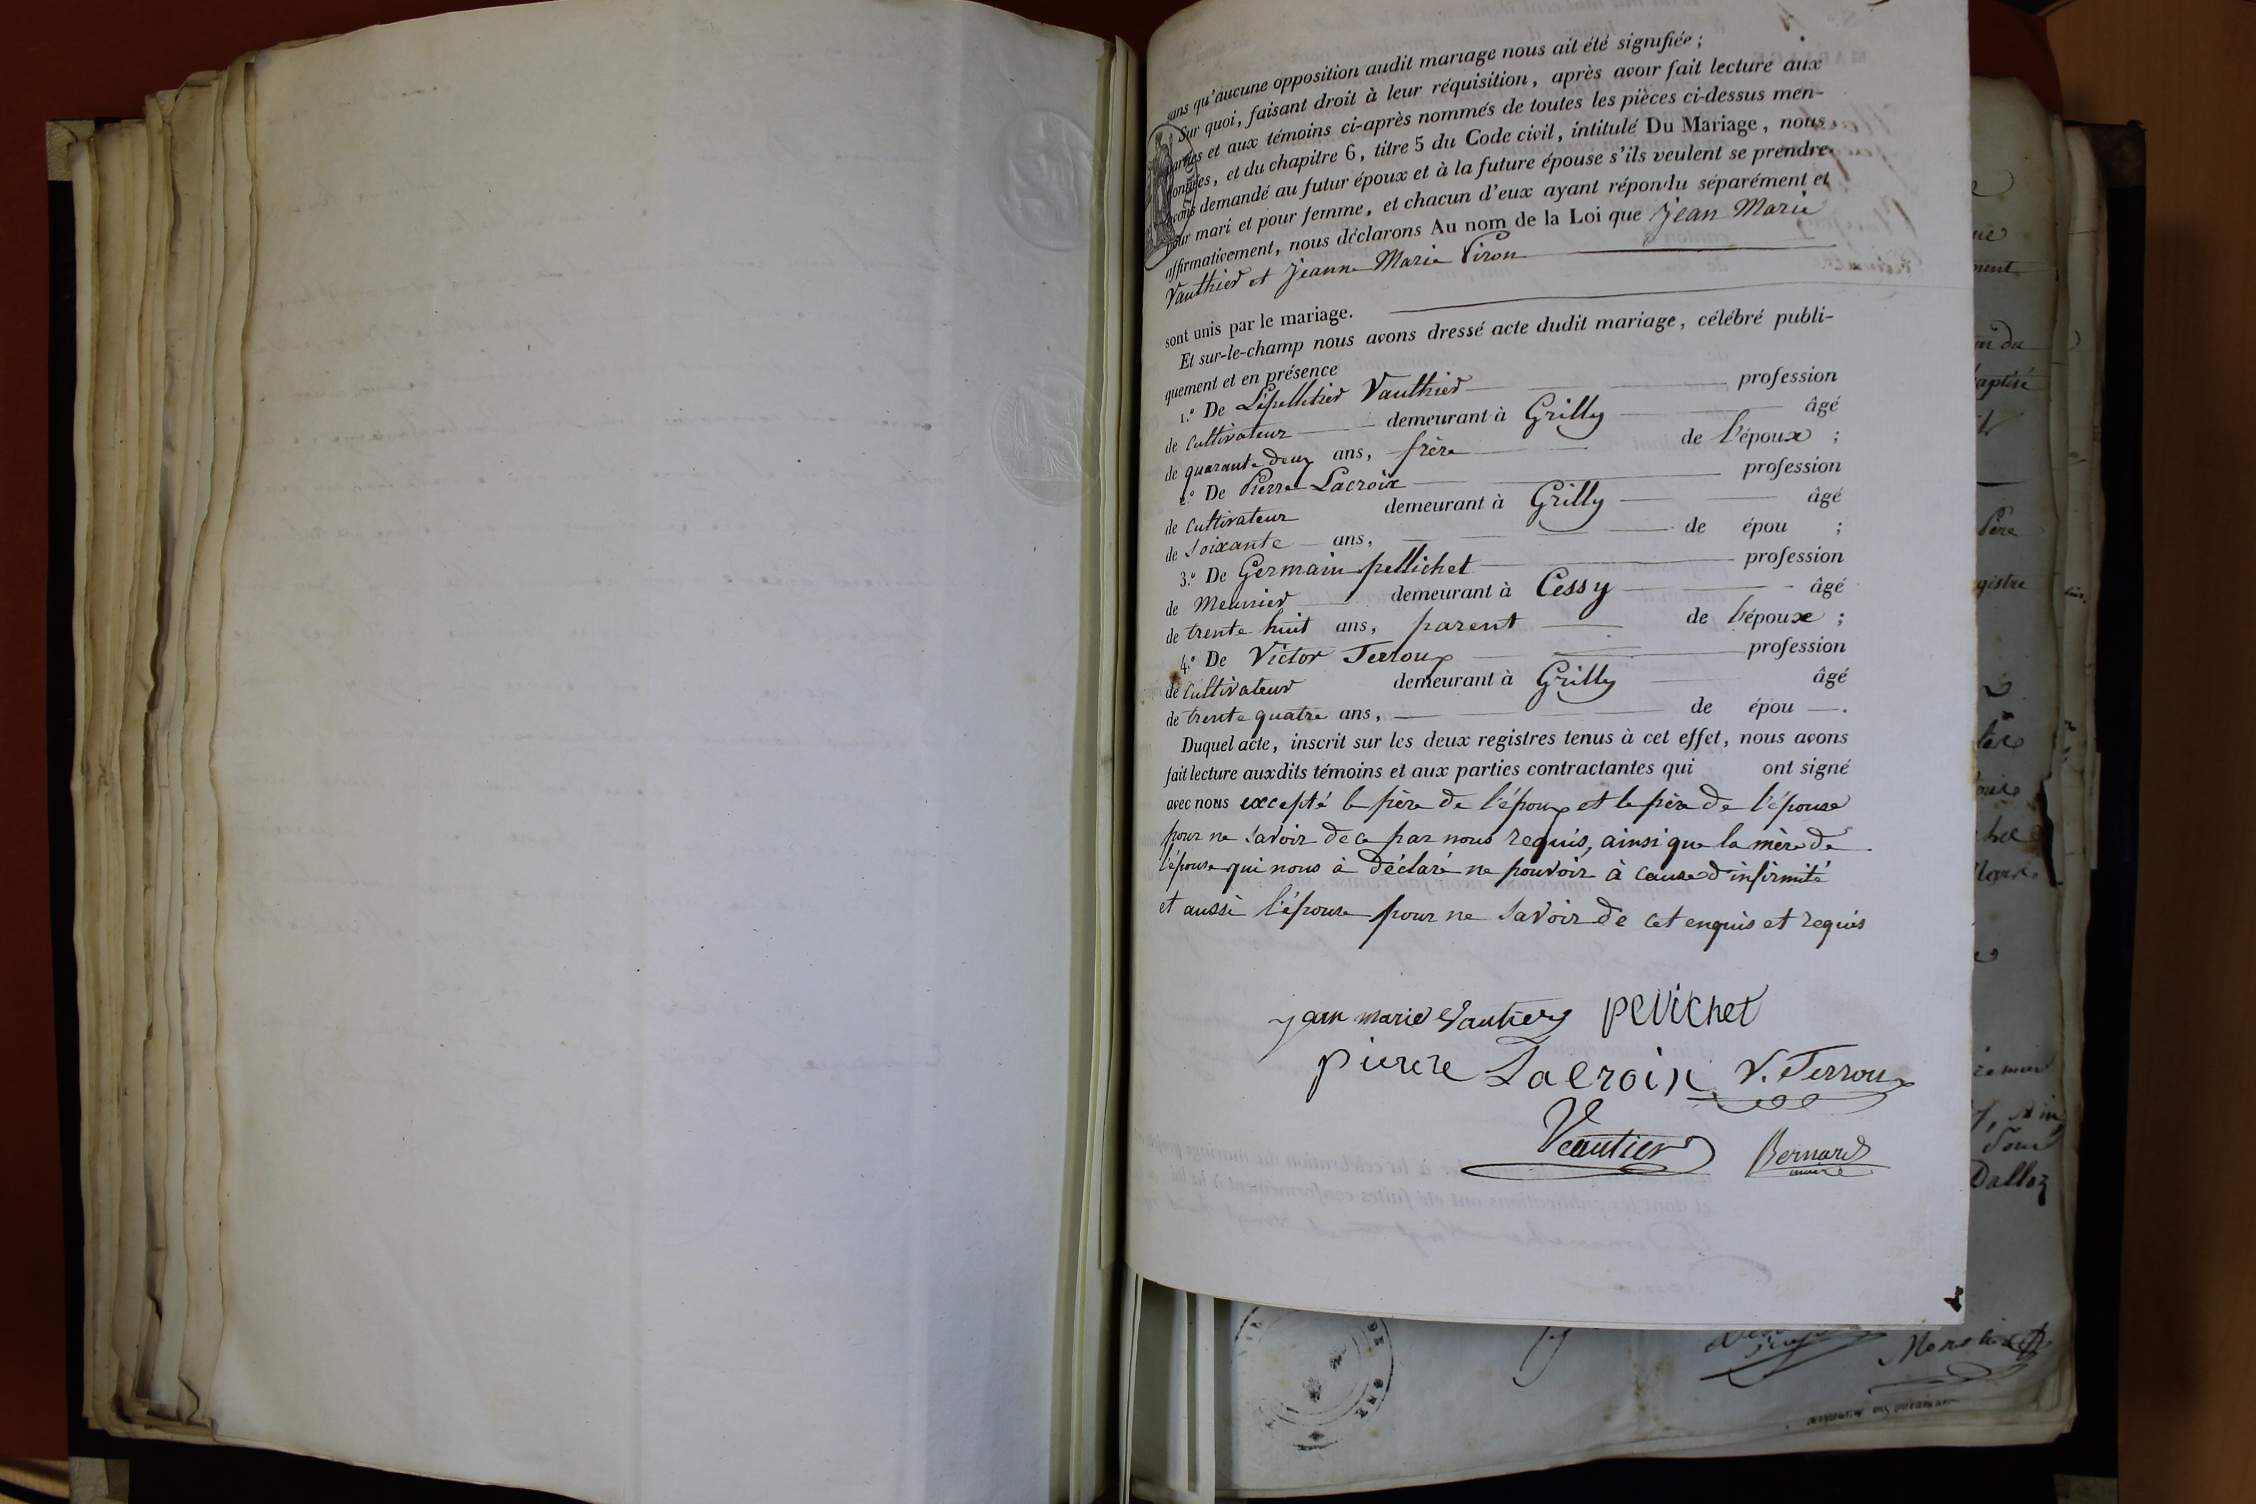 sans qu'aucune opposition audit mariage nous ait été signifiée ;
Sur quoi, faisant droit à leur réquisition, après avoir fait lecture aux
parties et aux témoins ci-après nommés de toutes les pièces ci-dessus men-
tionnées, et du chapitre 6, titre 5 du Code civil, intitulé Du Mariage, nous
avons demandé au futur époux et à la future épouse s'ils veulent se prendre
pour mari et pour femme, et chacun d'eux ayant répondu séparément et
affirmativement, nous déclarons Au nom de la Loi que Jean Marie
Vauthier et Jeanne Marie Piron
sont unis par le mariage.
Et sur-le-champ nous avons dressé acte dudit mariage, célébré publi-
quement et en présence
1.º De Lépelletier Vauthier profession
de cultivateur demeurant à Grilly âgé
de quarante deux ans, frère de l'époux ;
2.º De Pierre Lacroix profession
de cultivateur demeurant à Grilly âgé
de soixante ans, de épou ;
3.º De Germain pellichet profession
de Meunier demeurant à Cessy âgé
de trente huit ans, parent de l'époux ;
4.º De Victor Terroux profession
de cultivateur demeurant à Grilly âgé
de trente quatre ans, de épou .
Duquel acte, inscrit sur les deux registres tenus à cet effet, nous avons
fait lecture auxdits témoins et aux parties contractantes qui ont signé
avec nous excepté le père de l'époux et le père de l'épouse
pour ne savoir de ce par nous requis, ainsi que la mère de
l'épouse qui nous à déclaré ne pouvoir à cause d'infirmité
et aussi l'épouse pour ne savoir de cet enquis et requis
jean marie Vautier pellichet
pierre Lacroix V. Terroux
Vautier Bernard
maire
Dalloz